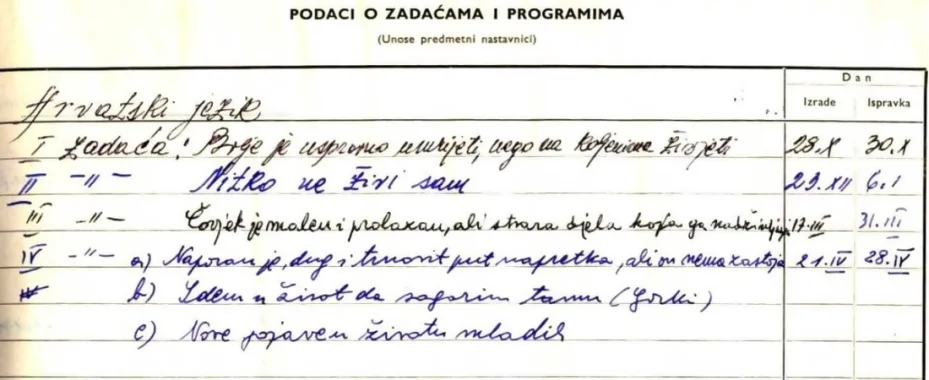 PODACI O ZADAĆAMA I PROGRAMIMA
(Unose predmetni nastavnici)
Dan
Izrade Ispravka
Hrvatski jezik
I zadaća: Bolje je uspravno umrijeti, nego na koljenima živjeti 28.X 30.X
II -"- Nitko ne živi sam 29.XII 6.I
III -"- Čovjek je malen i prolazan, ali stvara djela koja ga nadživljuju 17.III 31.III
IV -"- a) Naporan je, dug i trnovit put napretka, ali on nema zastoja 21.IV 28.IV
b) Idem u život da sagorim tamu (Gorki)
c) Nove pojave u životu mladih